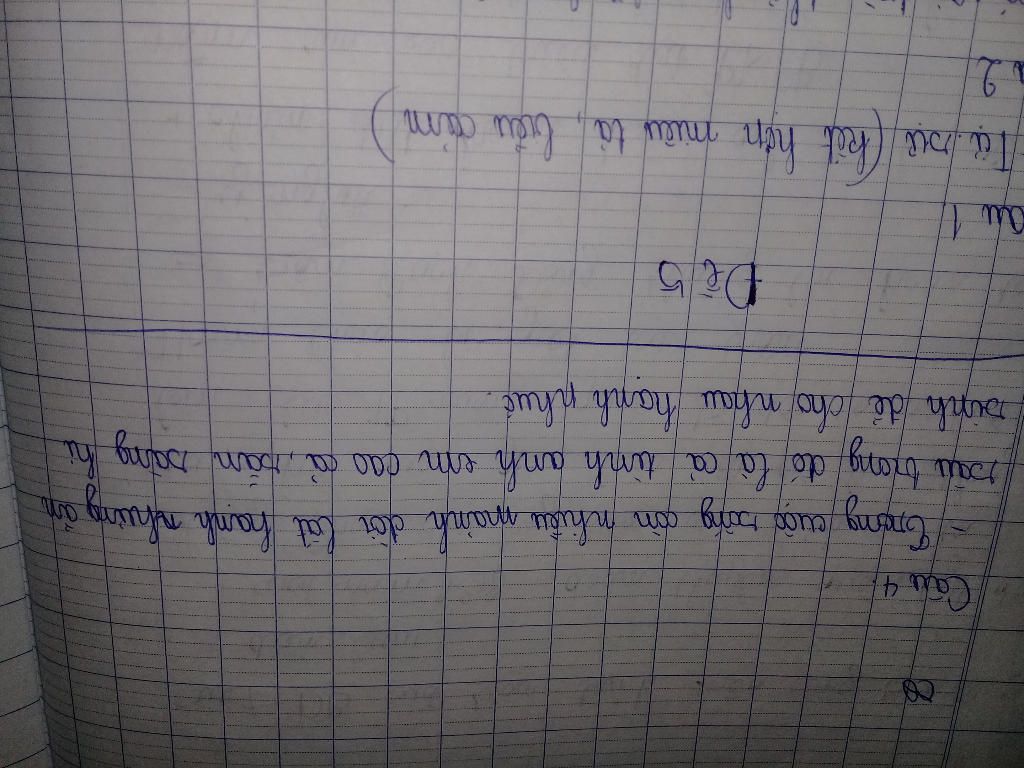 Câu 4.
- Trong cuộc sống còn nhiều mảnh đời bất hạnh nhưng ẩn
sâu trong đó là cả tình anh em cao cả, sẵn sàng hi
sinh để cho nhau hạnh phúc.
Đề 5
âu 1
Tự sự (kết hợp miêu tả, biểu cảm)
2